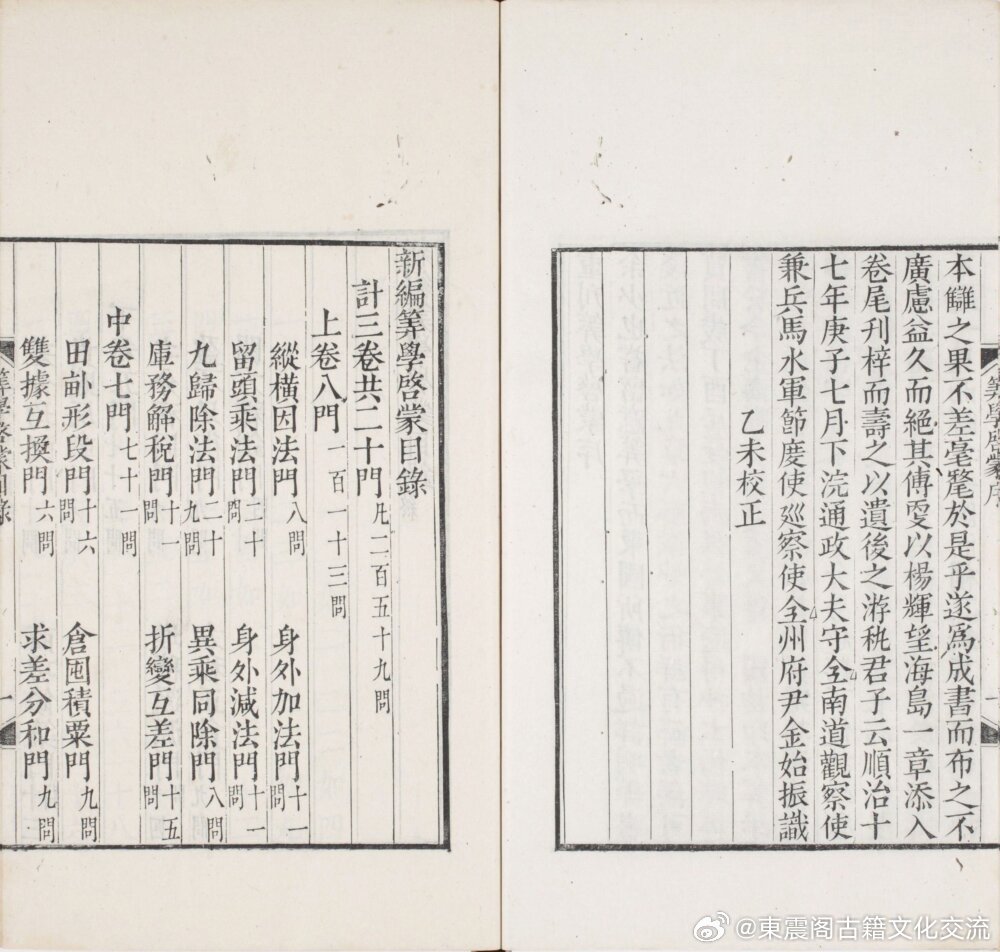 本讎之果不差毫氂於是乎遂為成書而布之不
廣慮益久而絕其傳更以楊輝望海島一章添入
卷尾刊梓而壽之以遺後之游秇君子云順治十
七年庚子七月下浣通政大夫守全南道觀察使
兼兵馬水軍節度使廵察使全州府尹金始振識
乙未校正
筭學啓蒙序
新編筭學啓蒙目錄
計三卷共二十門 凡二百五十九問
上卷八門 一百一十三問
縱橫因法門 八問 身外加法門 十一問
留頭乘法門 二十問 身外減法門 十一問
九歸除法門 二十九問 異乘同除門 八問
庫務解稅門 十一問 折變互差門 十五問
中卷七門 七十一問
田畝形段門 十六問 倉囤積粟門 九問
雙據互換門 六問 求差分和門 九問
筭學啓蒙目錄
一
@東震阁古籍文化交流